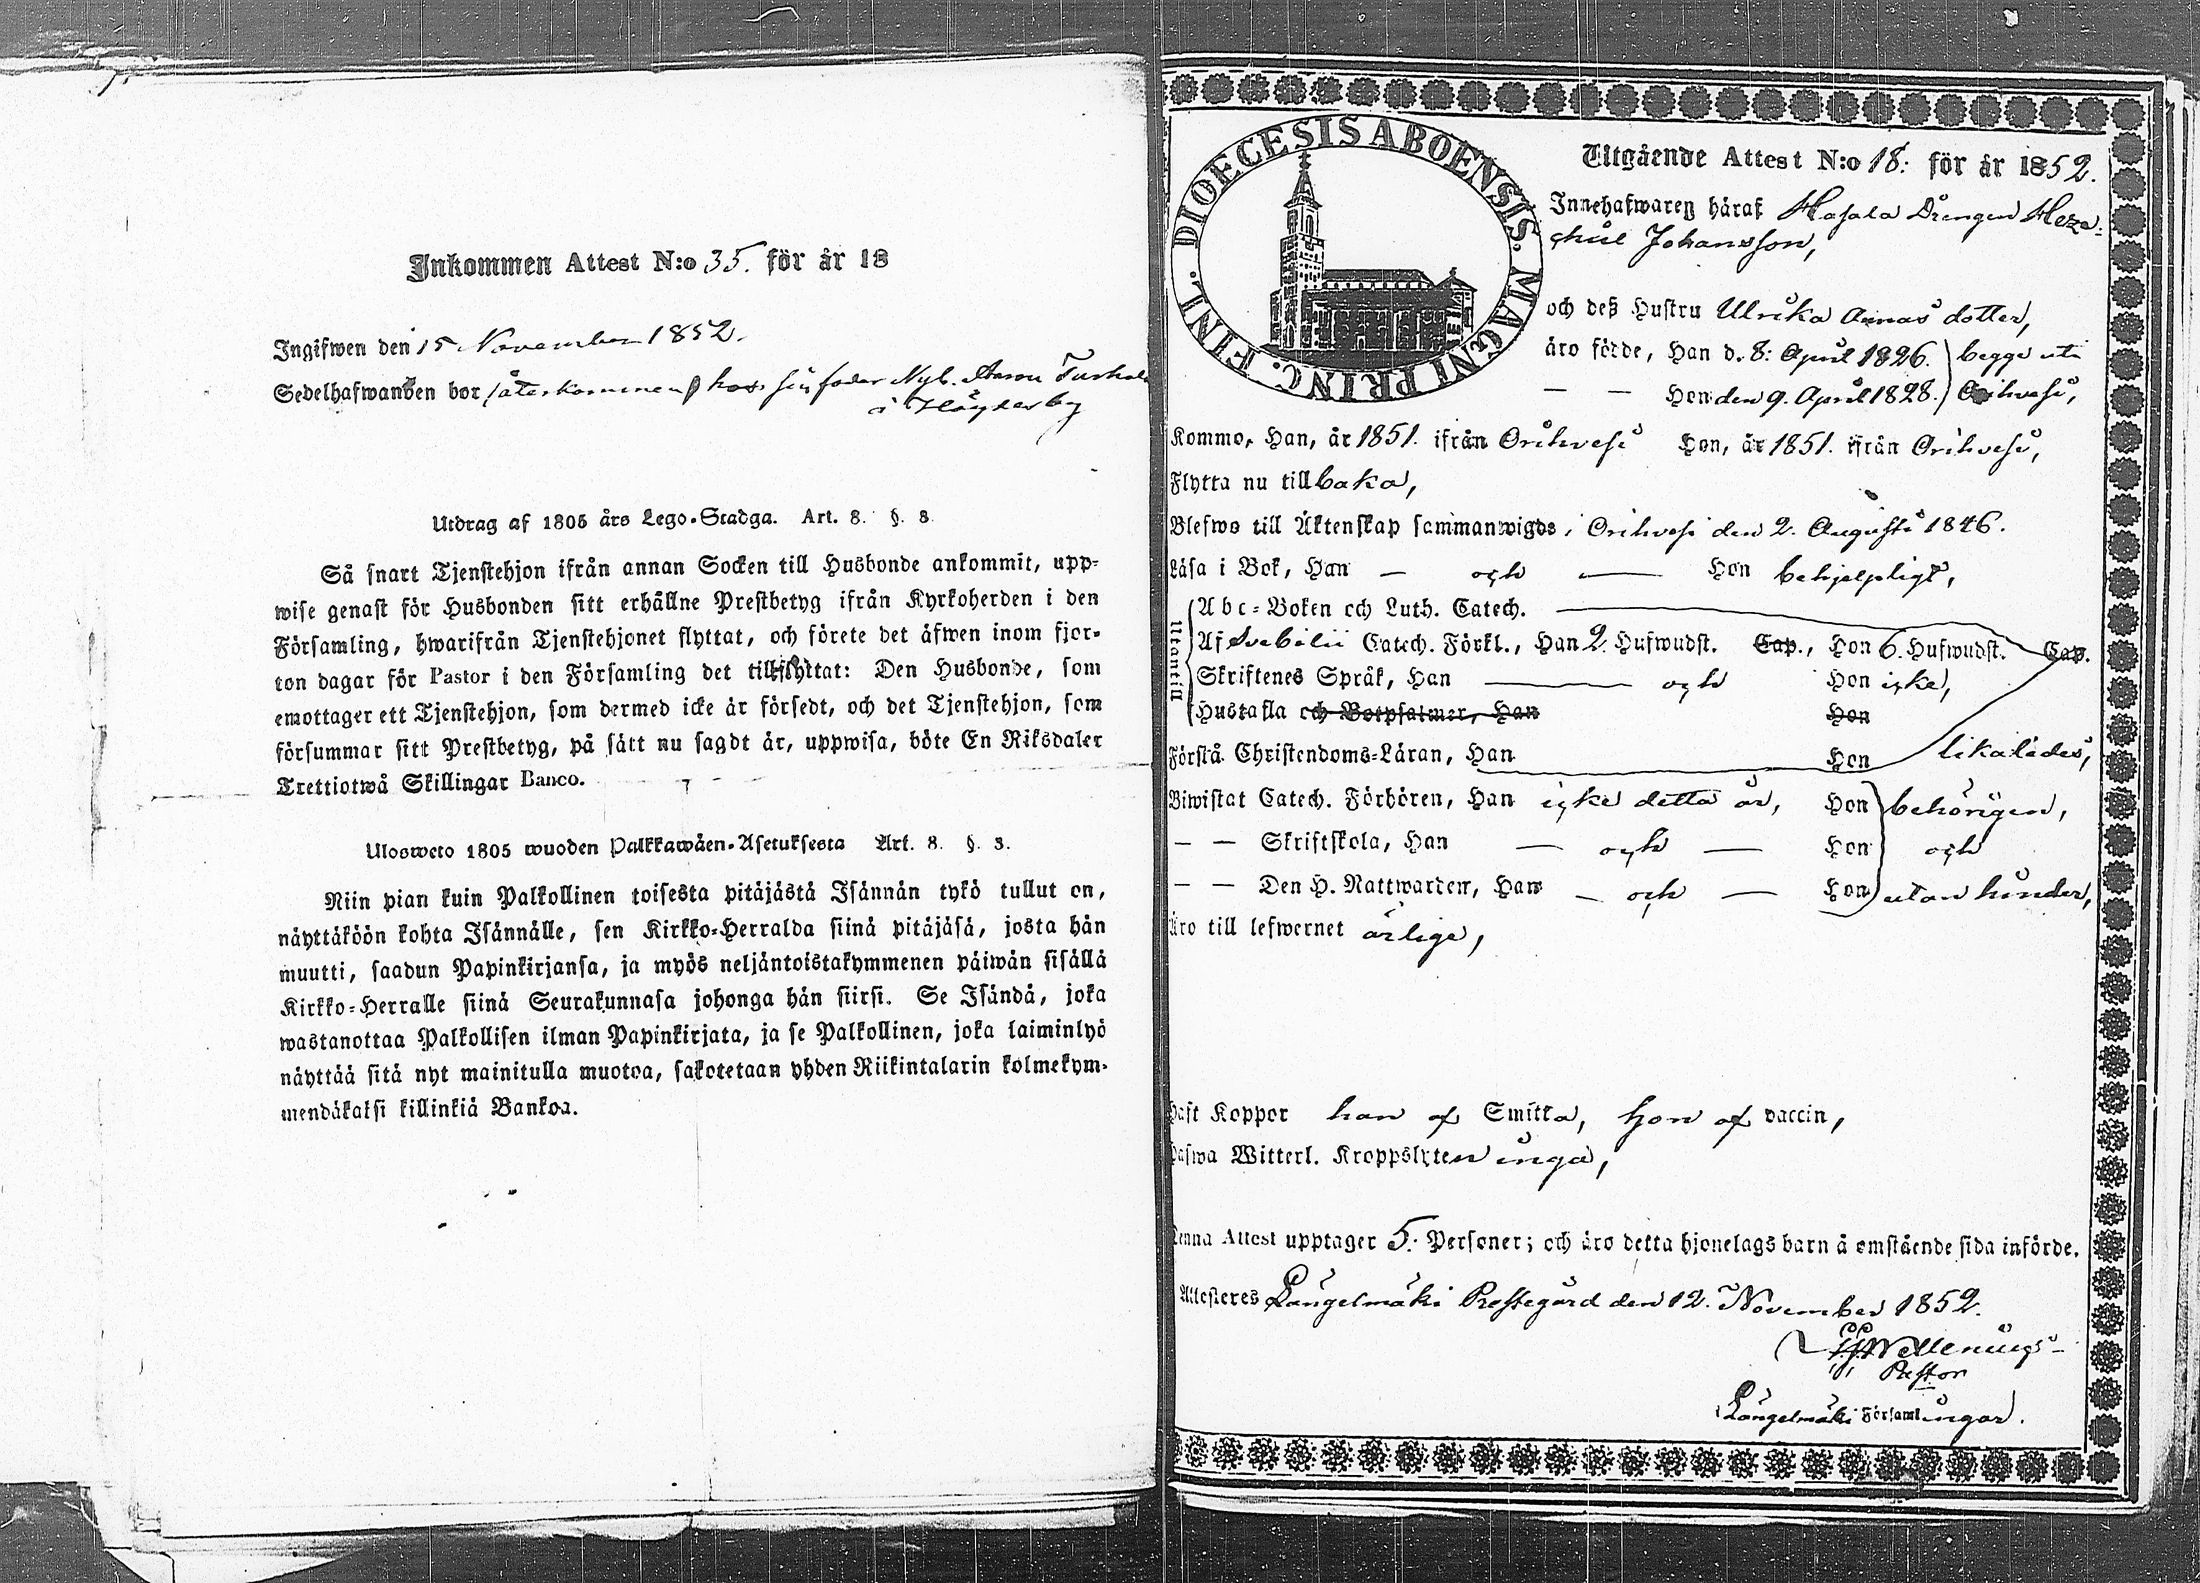 Inkommen Attest N:o 35. för år 18
Ingifwen den 15 November 1852.
Sedelhafwanden bor (återkommen) hos sin fader Nyb. Aaron
i
Utdrag af 1805 års Lego-Stadga. Art. 8. §. 8
Så snart Tjenstehjon ifrån annan Socken till Husbonde ankommit, upp-
wise genast för Husbonden sitt erhållne Prestbetyg ifrån Kyrkoherden i den
Församling, hwarifrån Tjenstehjonet flyttat, och förete det äfwen inom fjor-
ton dagar för Pastor i den Församling det tillflyttat: Den Husbonde, som
emottager ett Tjenstehjon, som dermed icke är försedt, och det Tjenstehjon, som
försummar sitt Prestbetyg, på sätt nu sagdt är, uppwisa, böte En Riksdaler
Trettiotwå Skillingar Banco.
Ulosweto 1805 wuoden Palkkawäen-Asetuksesta Art. 8. §. 3.
Niin pian kuin Palkollinen toisesta pitäjästä Isännän tykö tullut on,
näyttäköön kohta Isännälle, sen Kirkko-Herralda siinä pitäjäsä, josta hän
muutti, saadun Papinkirjansa, ja myös neljäntoistakymmenen päiwän sisällä
Kirkko-Herralle siinä Seurakunnasa johonga hän siirsi. Se Isändä, joka
wastanottaa Palkollisen ilman Papinkirjata, ja se Palkollinen, joka laiminlyö
näyttää sitä nyt mainitulla muotoa, sakotetaan yhden Riikintalarin kolmekym-
mendäkaksi killinkiä Bankoa.
DIOECESIS ABOENSIS. MAGNI PRINC. FINL.
Utgående Attest N:o 18. för år 1852.
Innehafwaren häraf Hasala Drengen Heze-
chiel Johansson,
och deß Hustru Ulrika Annas dotter,
äro födde, Han d. 8. April 1826. } begge uti
— — Hon den 9. April 1828. } Orihvesi,
Kommo, Han, år 1851. ifrån Orihvesi Hon, år 1851. ifrån Orihvesi,
Flytta nu tillbaka,
Blefwo till Äktenskap sammanwigde i Orihvesi den 2. Augusti 1846.
Läsa i Bok, Han — och — Hon behjelpligt,
Utantill
Abc-Boken och Luth. Catech. —
Af Svebilii Catech. Förkl., Han 2. Hufwudst. Cap., Hon 6. Hufwudst. Cap.
Skriftenes Språk, Han — och Hon icke,
Hustafla och Botpsalmer, Han Hon
Förstå Christendoms-Läran, Han Hon likaledes,
Biwistat Catech. Förhören, Han icke detta år, Hon behörigen,
— — Skriftskola, Han — och — Hon och
— — Den H. Nattwarden, Han — och — Hon utan hinder,
Äro till lefwernet ärlige,
Haft Koppor han af Smitta, hon af vaccin,
Hafwa Witterl. Kroppslyten inga,
Denna Attest upptager 5. Personer; och äro detta hjonelags barn å omstående sida införde.
Attesteres Längelmäki Prestegård den 12. November 1852.
Pastor
Längelmäki Församlingar.